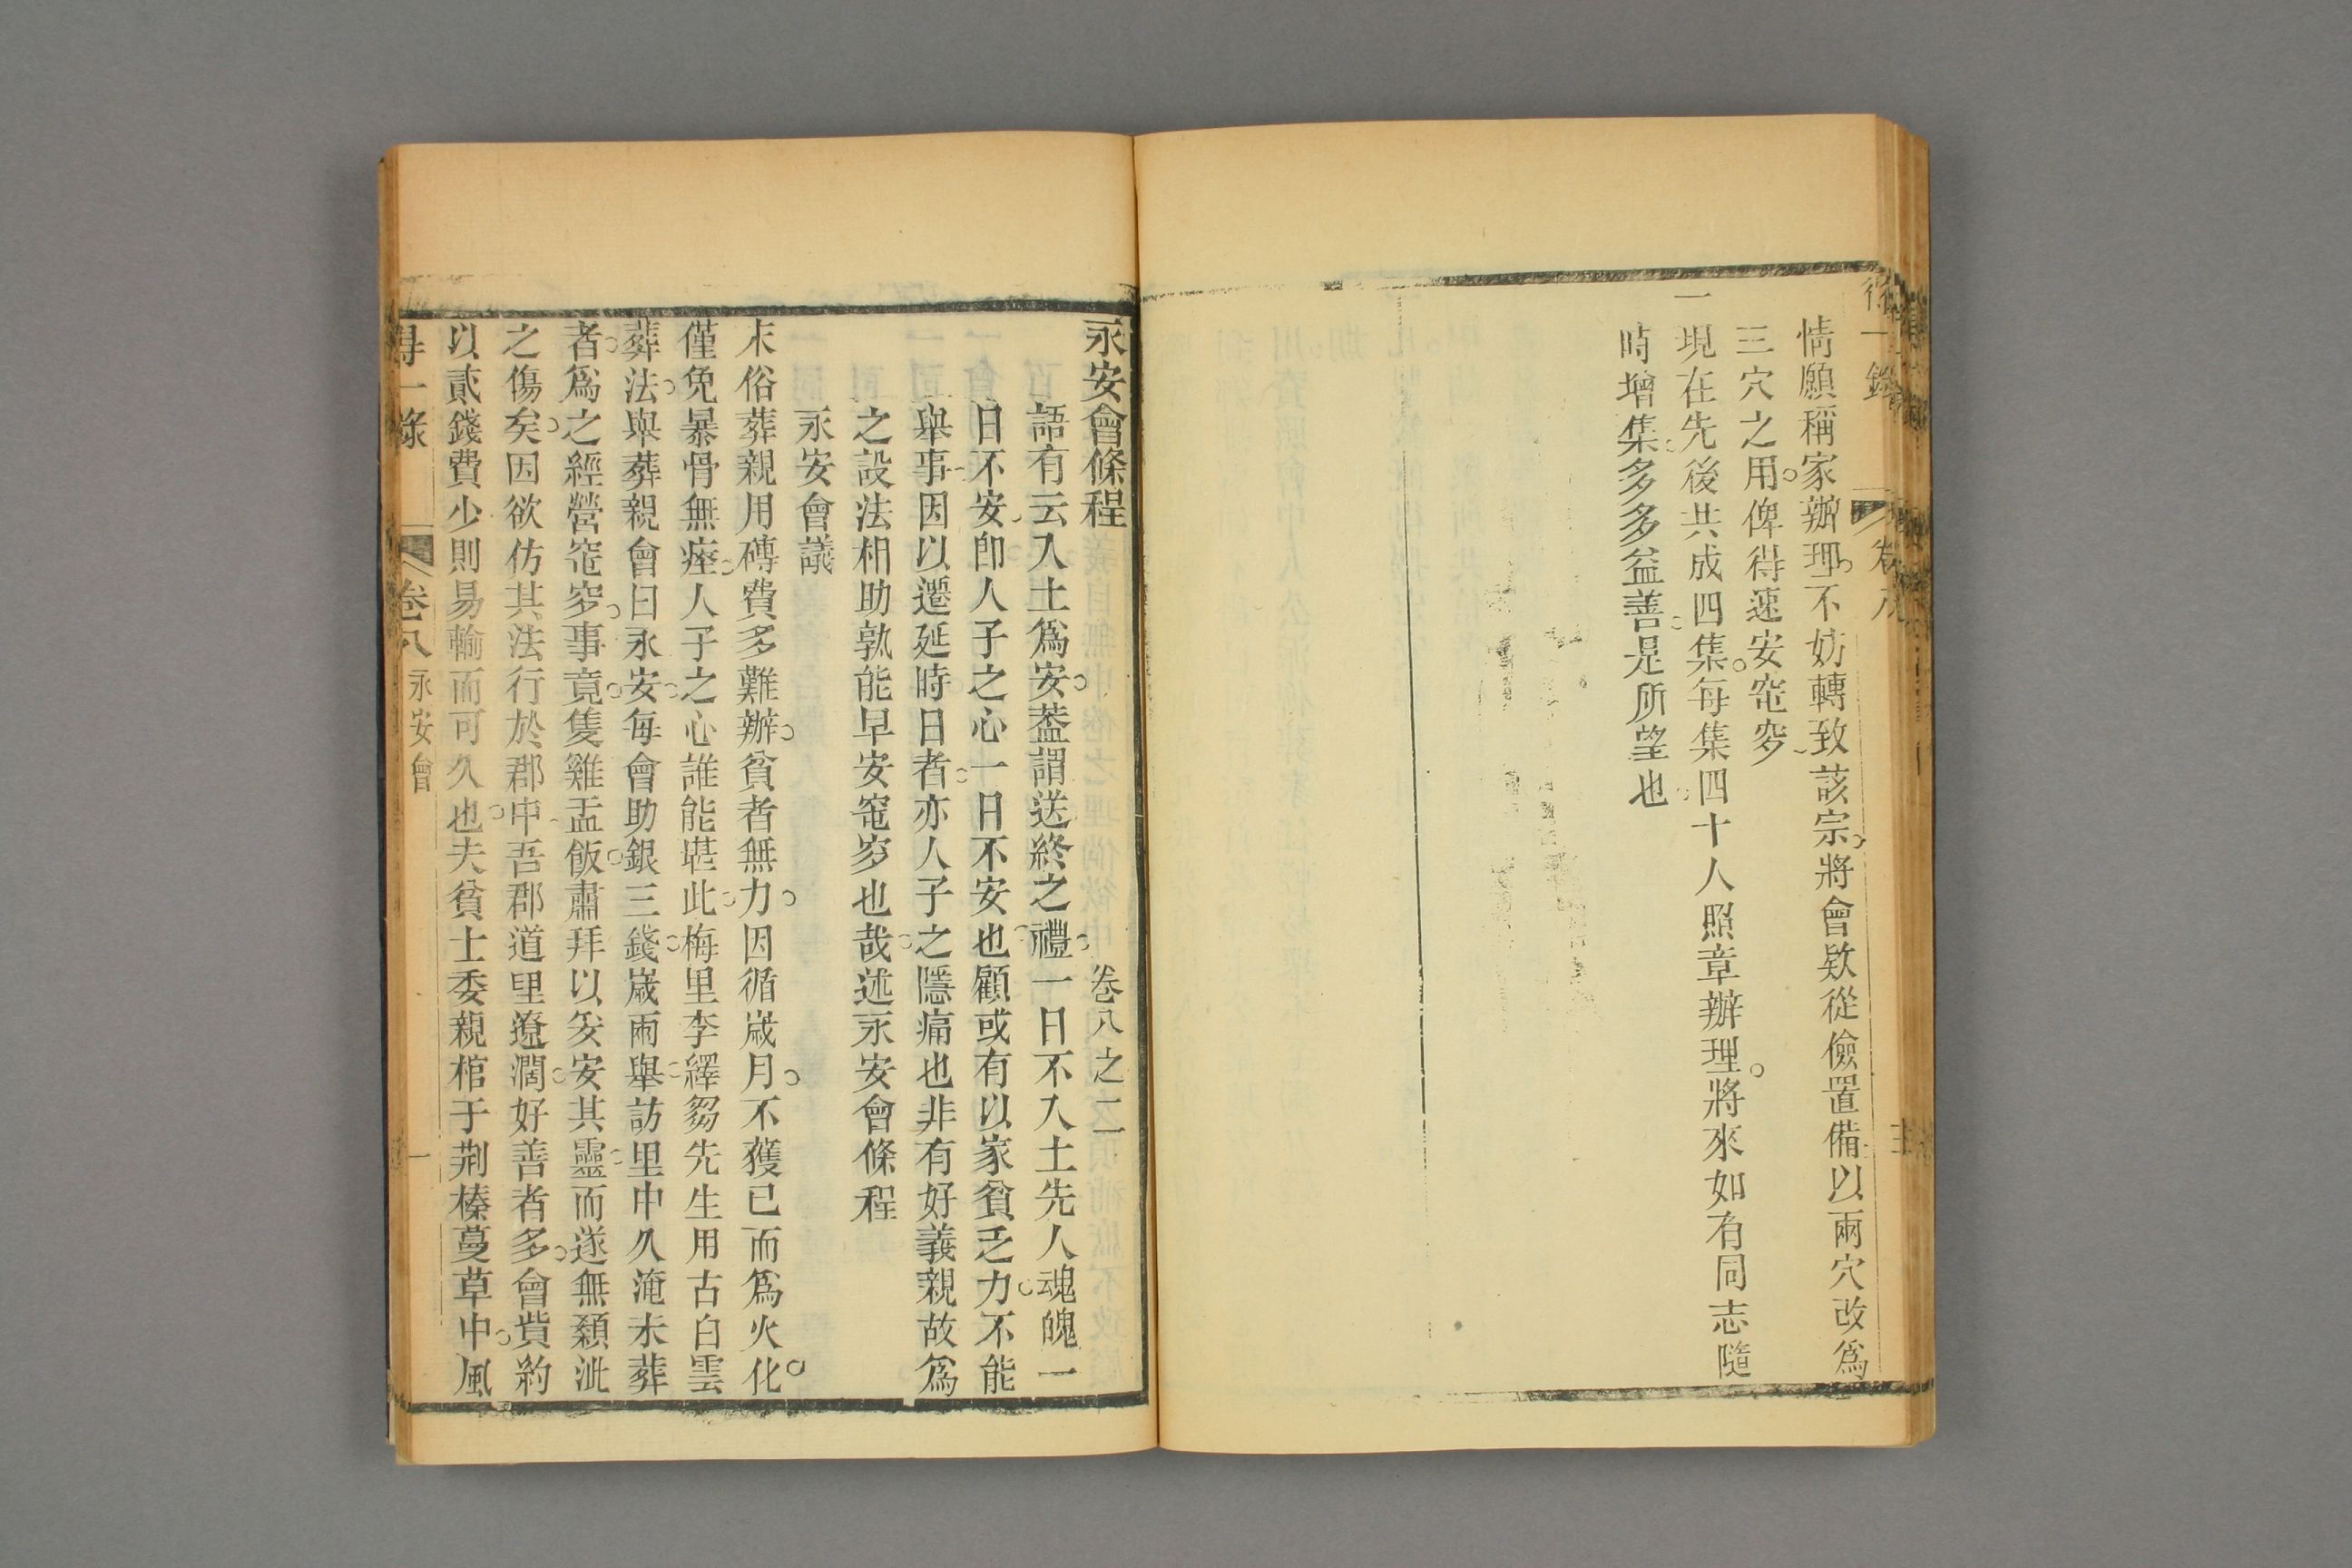 得一錄 卷八
情願稱家辦理不妨轉致該宗將會欵從儉置備以兩穴改爲
三穴之用俾得速安窀穸
一現在先後共成四集每集四十人照章辦理將來如有同志隨
時增集多多益善是所望也
永安會條程 卷八之二
語有云入土爲安葢謂送終之禮一日不入土先人魂魄一
日不安卽人子之心一日不安也顧或有以家貧乏力不能
舉事因以遷延時日者亦人子之隱痛也非有好義親故爲
之設法相助孰能早安窀穸也哉述永安會條程
永安會議
末俗葬親用磚費多難辦貧者無力因循歲月不獲已而爲火化
僅免暴骨無瘞人子之心誰能堪此梅里李繹芻先生用古白雲
葬法舉葬親會曰永安每會助銀三錢歲兩舉訪里中久淹未葬
者爲之經營窀穸事竟隻雞盂飯肅拜以妥安其靈而遂無顙泚
之傷矣因欲仿其法行於郡中吾郡道里遼濶好善者多會貲約
以貳錢費少則易輸而可久也夫貧士委親棺于荆榛蔓草中風
得一錄 卷八 永安會 一